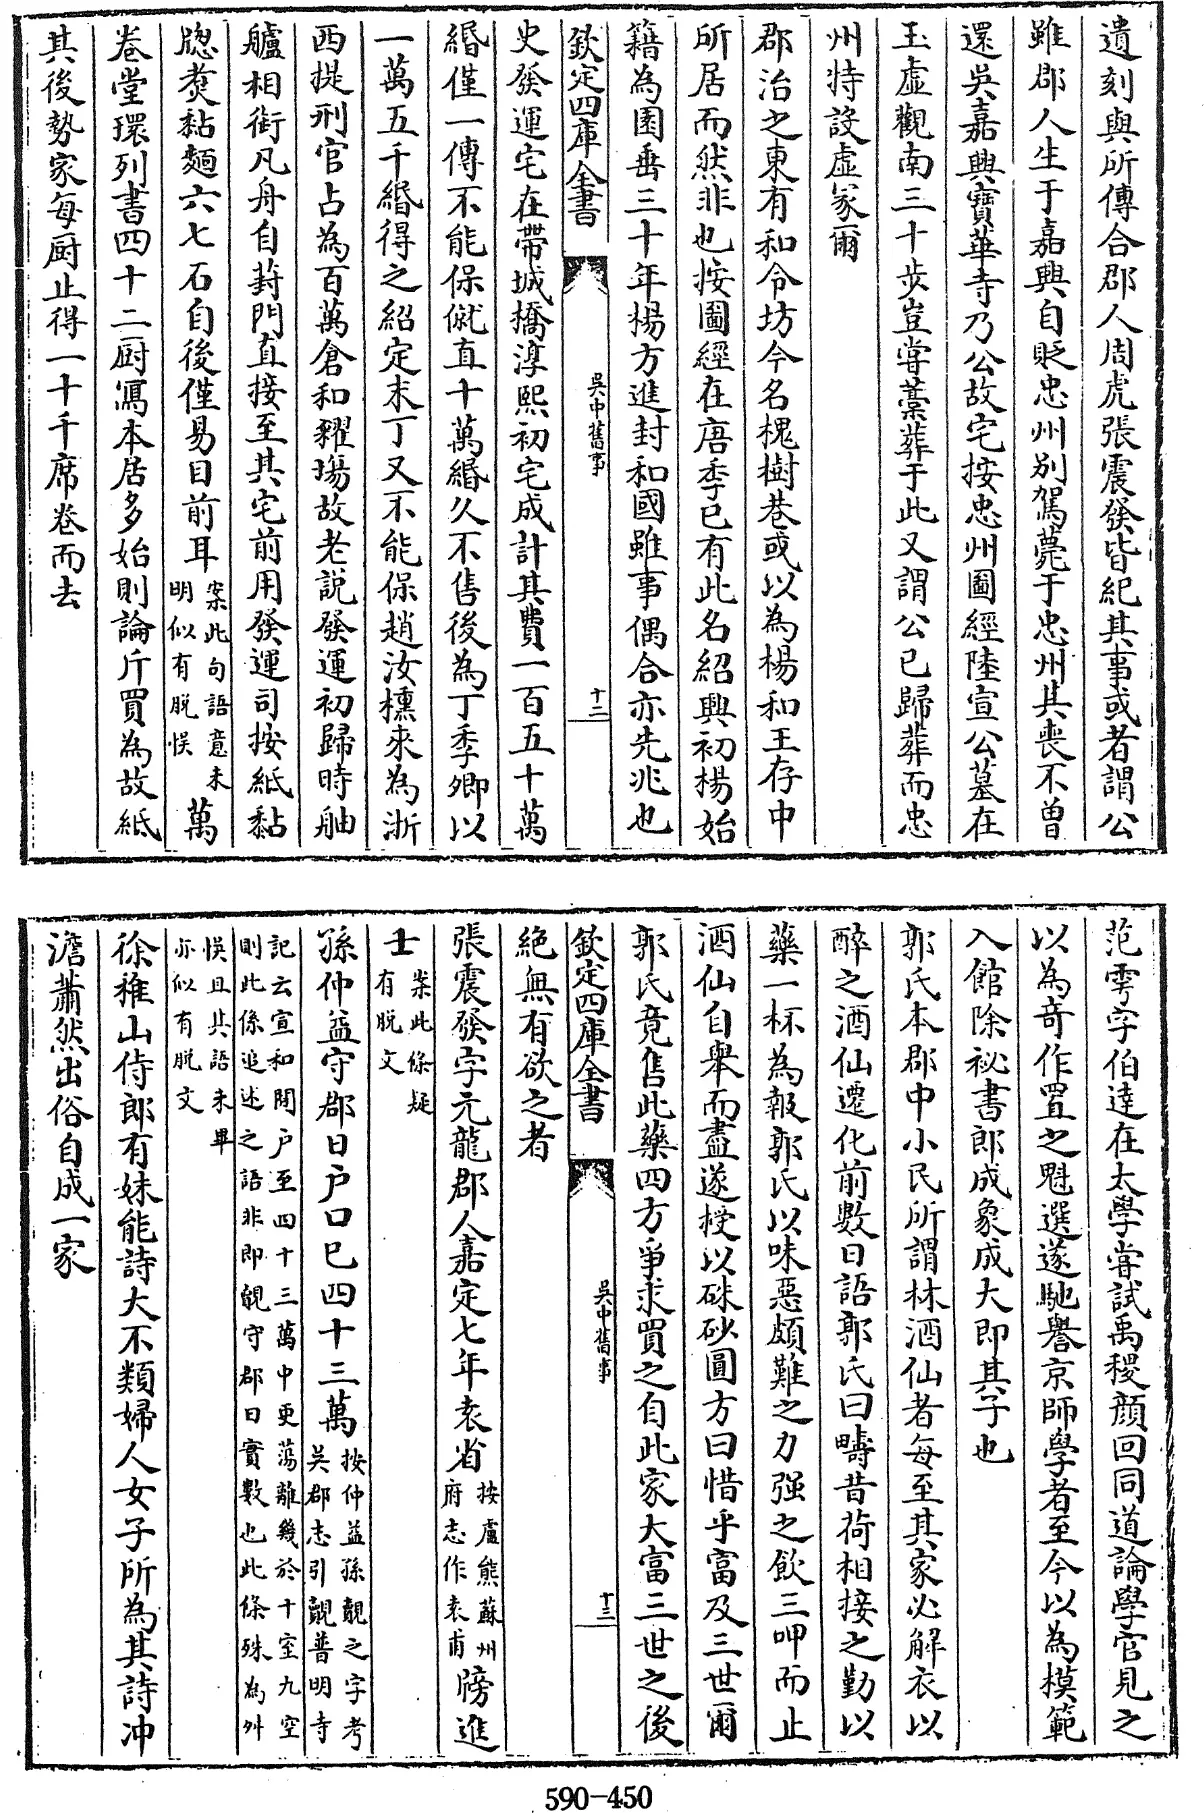 遺刻與所傳合郡人周虎張震發皆紀其事或者謂公
雖郡人生于嘉興自貶忠州别駕薨于忠州其喪不曽
還吳嘉興寶華寺乃公故宅按忠州圖經陸宣公墓在
玉虛觀南三十步豈嘗藁葬于此又謂公已歸葬而忠
州特設虛冢爾
郡治之東有和令坊今名槐樹巷或以為楊和王存中
所居而然非也按圖經在唐季已有此名紹興初楊始
籍為園垂三十年楊方進封和國雖事偶合亦先兆也
欽定四庫全書
吳中舊事
十二
史發運宅在帶城橋淳熙初宅成計其費一百五十萬
緡僅一傳不能保僦直十萬緡久不售後為丁季卿以
一萬五千緡得之紹定末丁又不能保趙汝櫄來為浙
西提刑官占為百萬倉和糴場故老說發運初歸時舳
艫相銜凡舟自葑門直接至其宅前用發運司按紙黏
牎煑黏麵六七石自後僅易目前耳
案此句語意未
明似有脱悮
萬
卷堂環列書四十二厨寫本居多始則論斤買為故紙
其後勢家每厨止得一十千席卷而去
范雩字伯達在太學嘗試禹稷顔回同道論學官見之
以為奇作置之魁選遂馳譽京師學者至今以為模範
入館除祕書郎成象成大即其子也
郭氏本郡中小民所謂林酒仙者每至其家必解衣以
醉之酒仙遷化前數日語郭氏曰疇昔荷相接之勤以
藥一杯為報郭氏以味惡頗難之力强之飲三呷而止
酒仙自舉而盡遂授以硃砂圓方曰惜乎富及三世爾
郭氏竟售此藥四方爭求買之自此家大富三世之後
欽定四庫全書
吳中舊事
十三
絶無有欲之者
張震發字元龍郡人嘉定七年袁省
按盧熊蘇州
府志作袁甫
牓進
士
案此條疑
有脱文
孫仲益守郡日户口已四十三萬
按仲益孫覿之字考
吳郡志引覿普明寺
記云宣和間户至四十三萬中更蕩離幾於十室九空
則此係追述之語非即覿守郡日實數也此條殊為舛
悮且其語未畢
亦似有脱文
徐稚山侍郎有妹能詩大不類婦人女子所為其詩冲
澹蕭然出俗自成一家
590-450